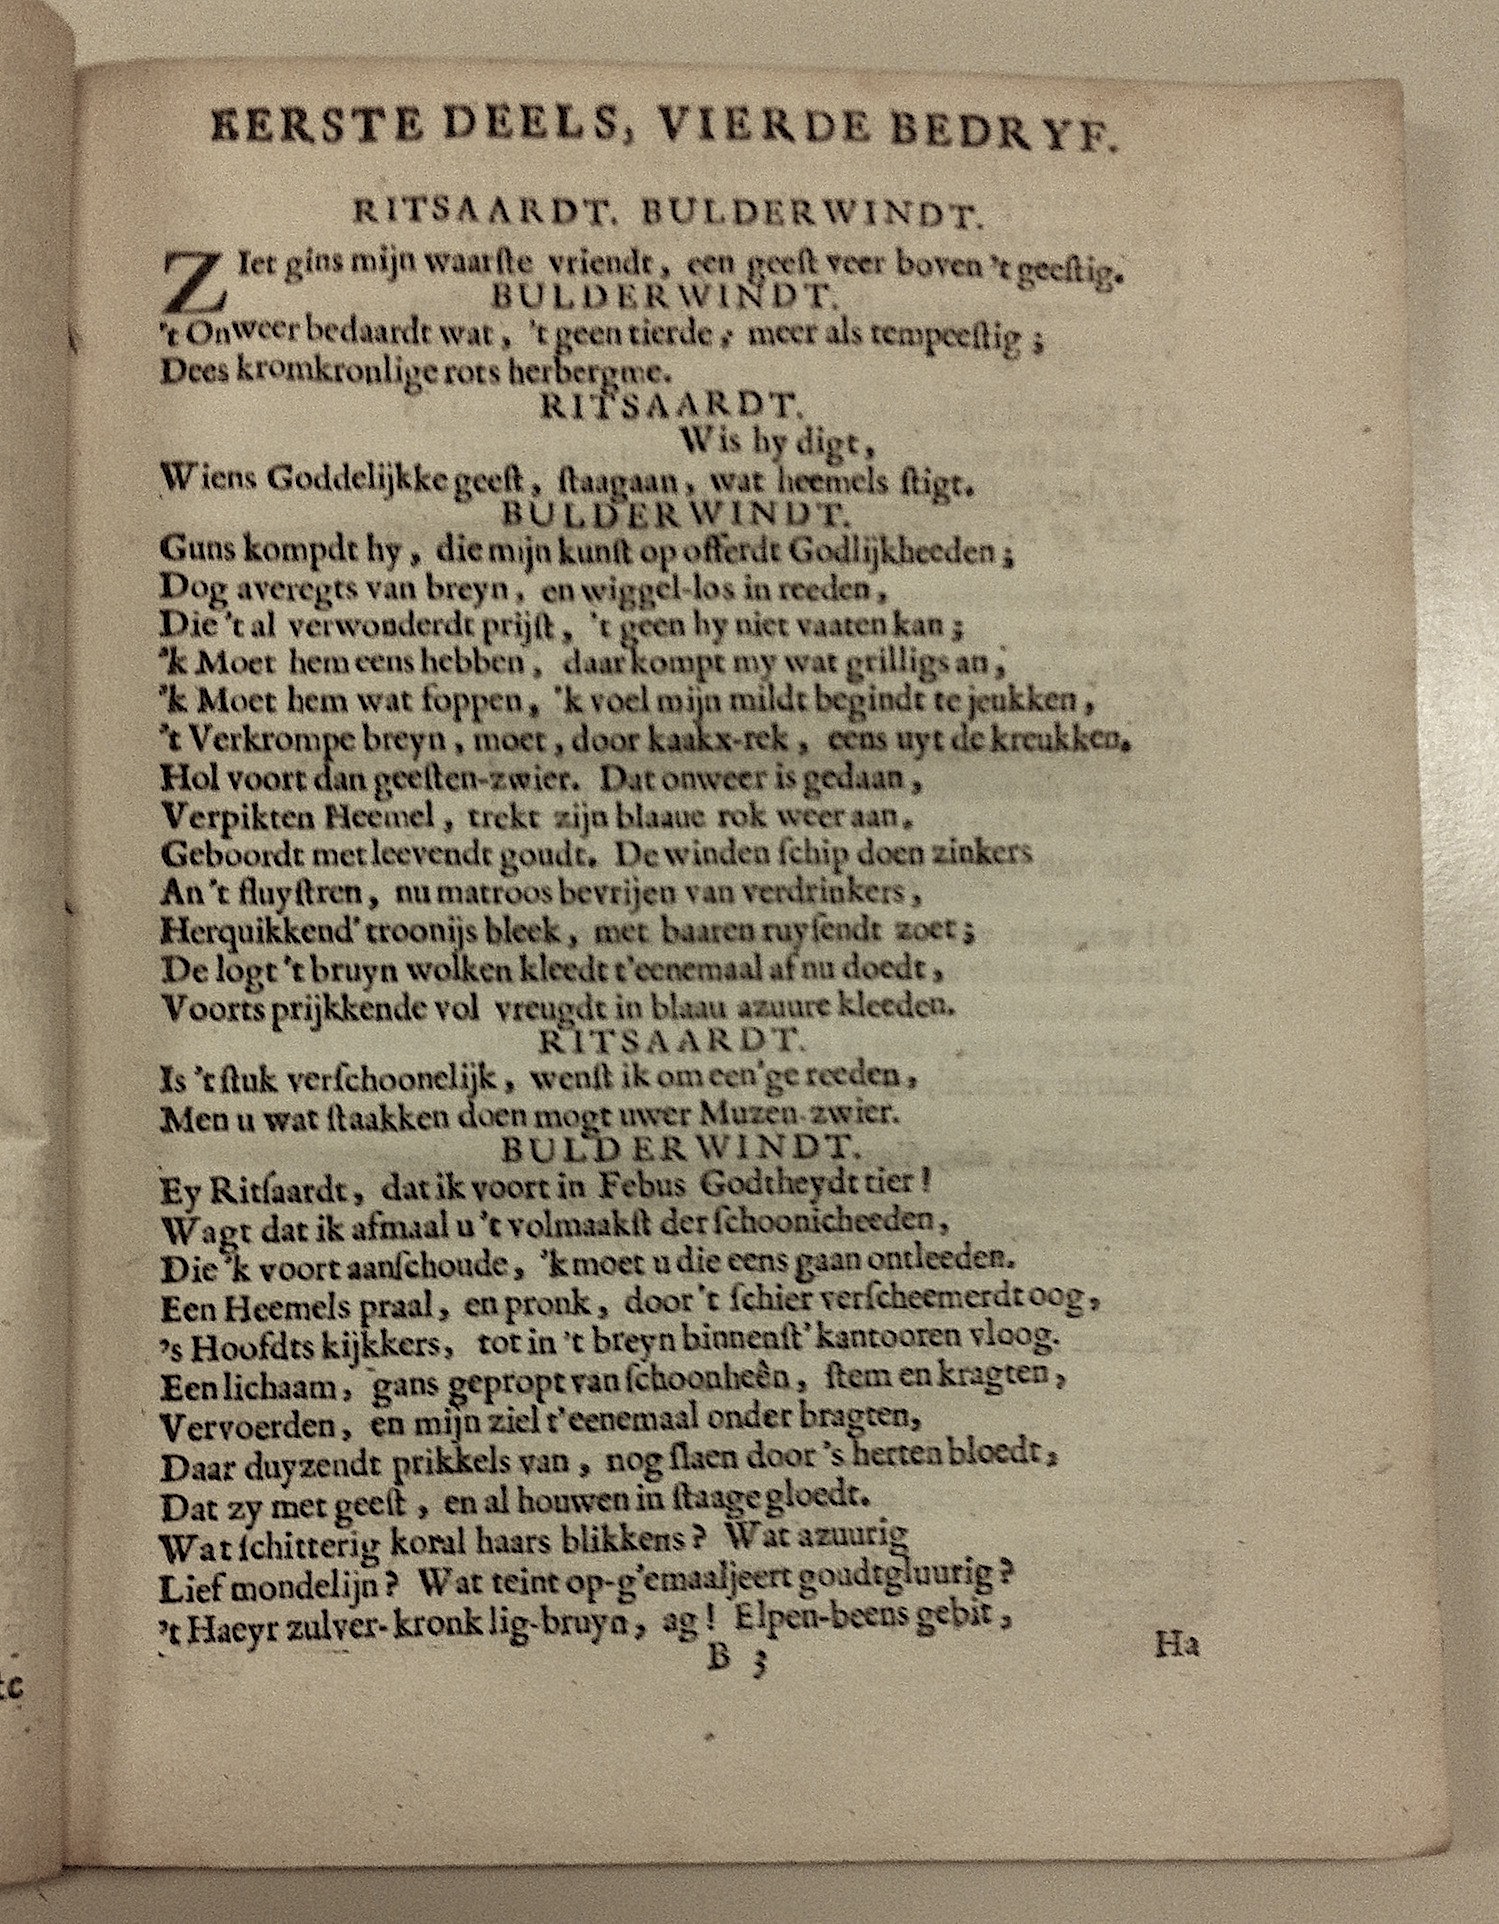 EERSTE DEELS, VIERDE BEDRYF.
RITSAARDT. BULDERWINDT.
ZIet gins mijn waarſte vriendt, een geeſt veer boven 't geeſtig.
BULDERWINDT.
't Onweer bedaardt wat, 't geen tierde, meer als tempeeſtig;
Dees kromkronlige rots herbergme.
RITSAARDT.
Wis hy digt,
Wiens Goddelijkke geeſt, ſtaagaan, wat heemels ſtigt.
BULDERWINDT.
Guns kompdt hy, die mijn kunſt op offerdt Godlijkheeden;
Dog averegts van breyn, en wiggel-los in reeden,
Die 't al verwonderdt prijſt, 't geen hy niet vaaten kan;
'k Moet hem eens hebben, daar kompt my wat grilligs an,
'k Moet hem wat foppen, 'k voel mijn mildt begindt te jeukken,
't Verkrompe breyn, moet, door kaakx-rek, eens uyt de kreukken.
Hol voort dan geeſten-zwier. Dat onweer is gedaan,
Verpikten Heemel, trekt zijn blaaue rok weer aan.
Geboordt met leevendt goudt. De winden ſchip doen zinkers
An 't fluyſtren, nu matroos bevrijen van verdrinkers,
Herquikkend' troonijs bleek, met baaren ruyſendt zoet;
De logt 't bruyn wolken kleedt t'eenemaal af nu doedt,
Voorts prijkkende vol vreugdt in blaau azuure kleeden.
RITSAARDT.
Is 't ſtuk verſchoonelijk, wenſt ik om een'ge reeden,
Men u wat ſtaakken doen mogt uwer Muzen-zwier.
BULDERWINDT.
Ey Ritſaardt, dat ik voort in Febus Godtheydt tier!
Wagt dat ik afmaal u 't volmaakſt der ſchoonicheeden,
Die 'k voort aanſchoude, 'k moet u die eens gaan ontleeden.
Een Heemels praal, en pronk, door 't ſchier verſcheemerdt oog,
's Hoofdts kijkkers, tot in 't breyn binnenſt' kantooren vloog.
Een lichaam, gans gepropt van ſchoonheên, ſtem en kragten,
Vervoerden, en mijn ziel t'eenemaal onder bragten,
Daar duyzendt prikkels van, nog ſlaen door 's herten bloedt,
Dat zy met geeſt, en al houwen in ſtaage gloedt.
Wat ſchitterig koral haars blikkens? Wat azuurig
Lief mondelijn? Wat teint op-g'emaaljeert goudtgluurig?
't Haeyr zulver-kronklig-bruyn, ag! Elpen-beens gebit,
B 3
Ha